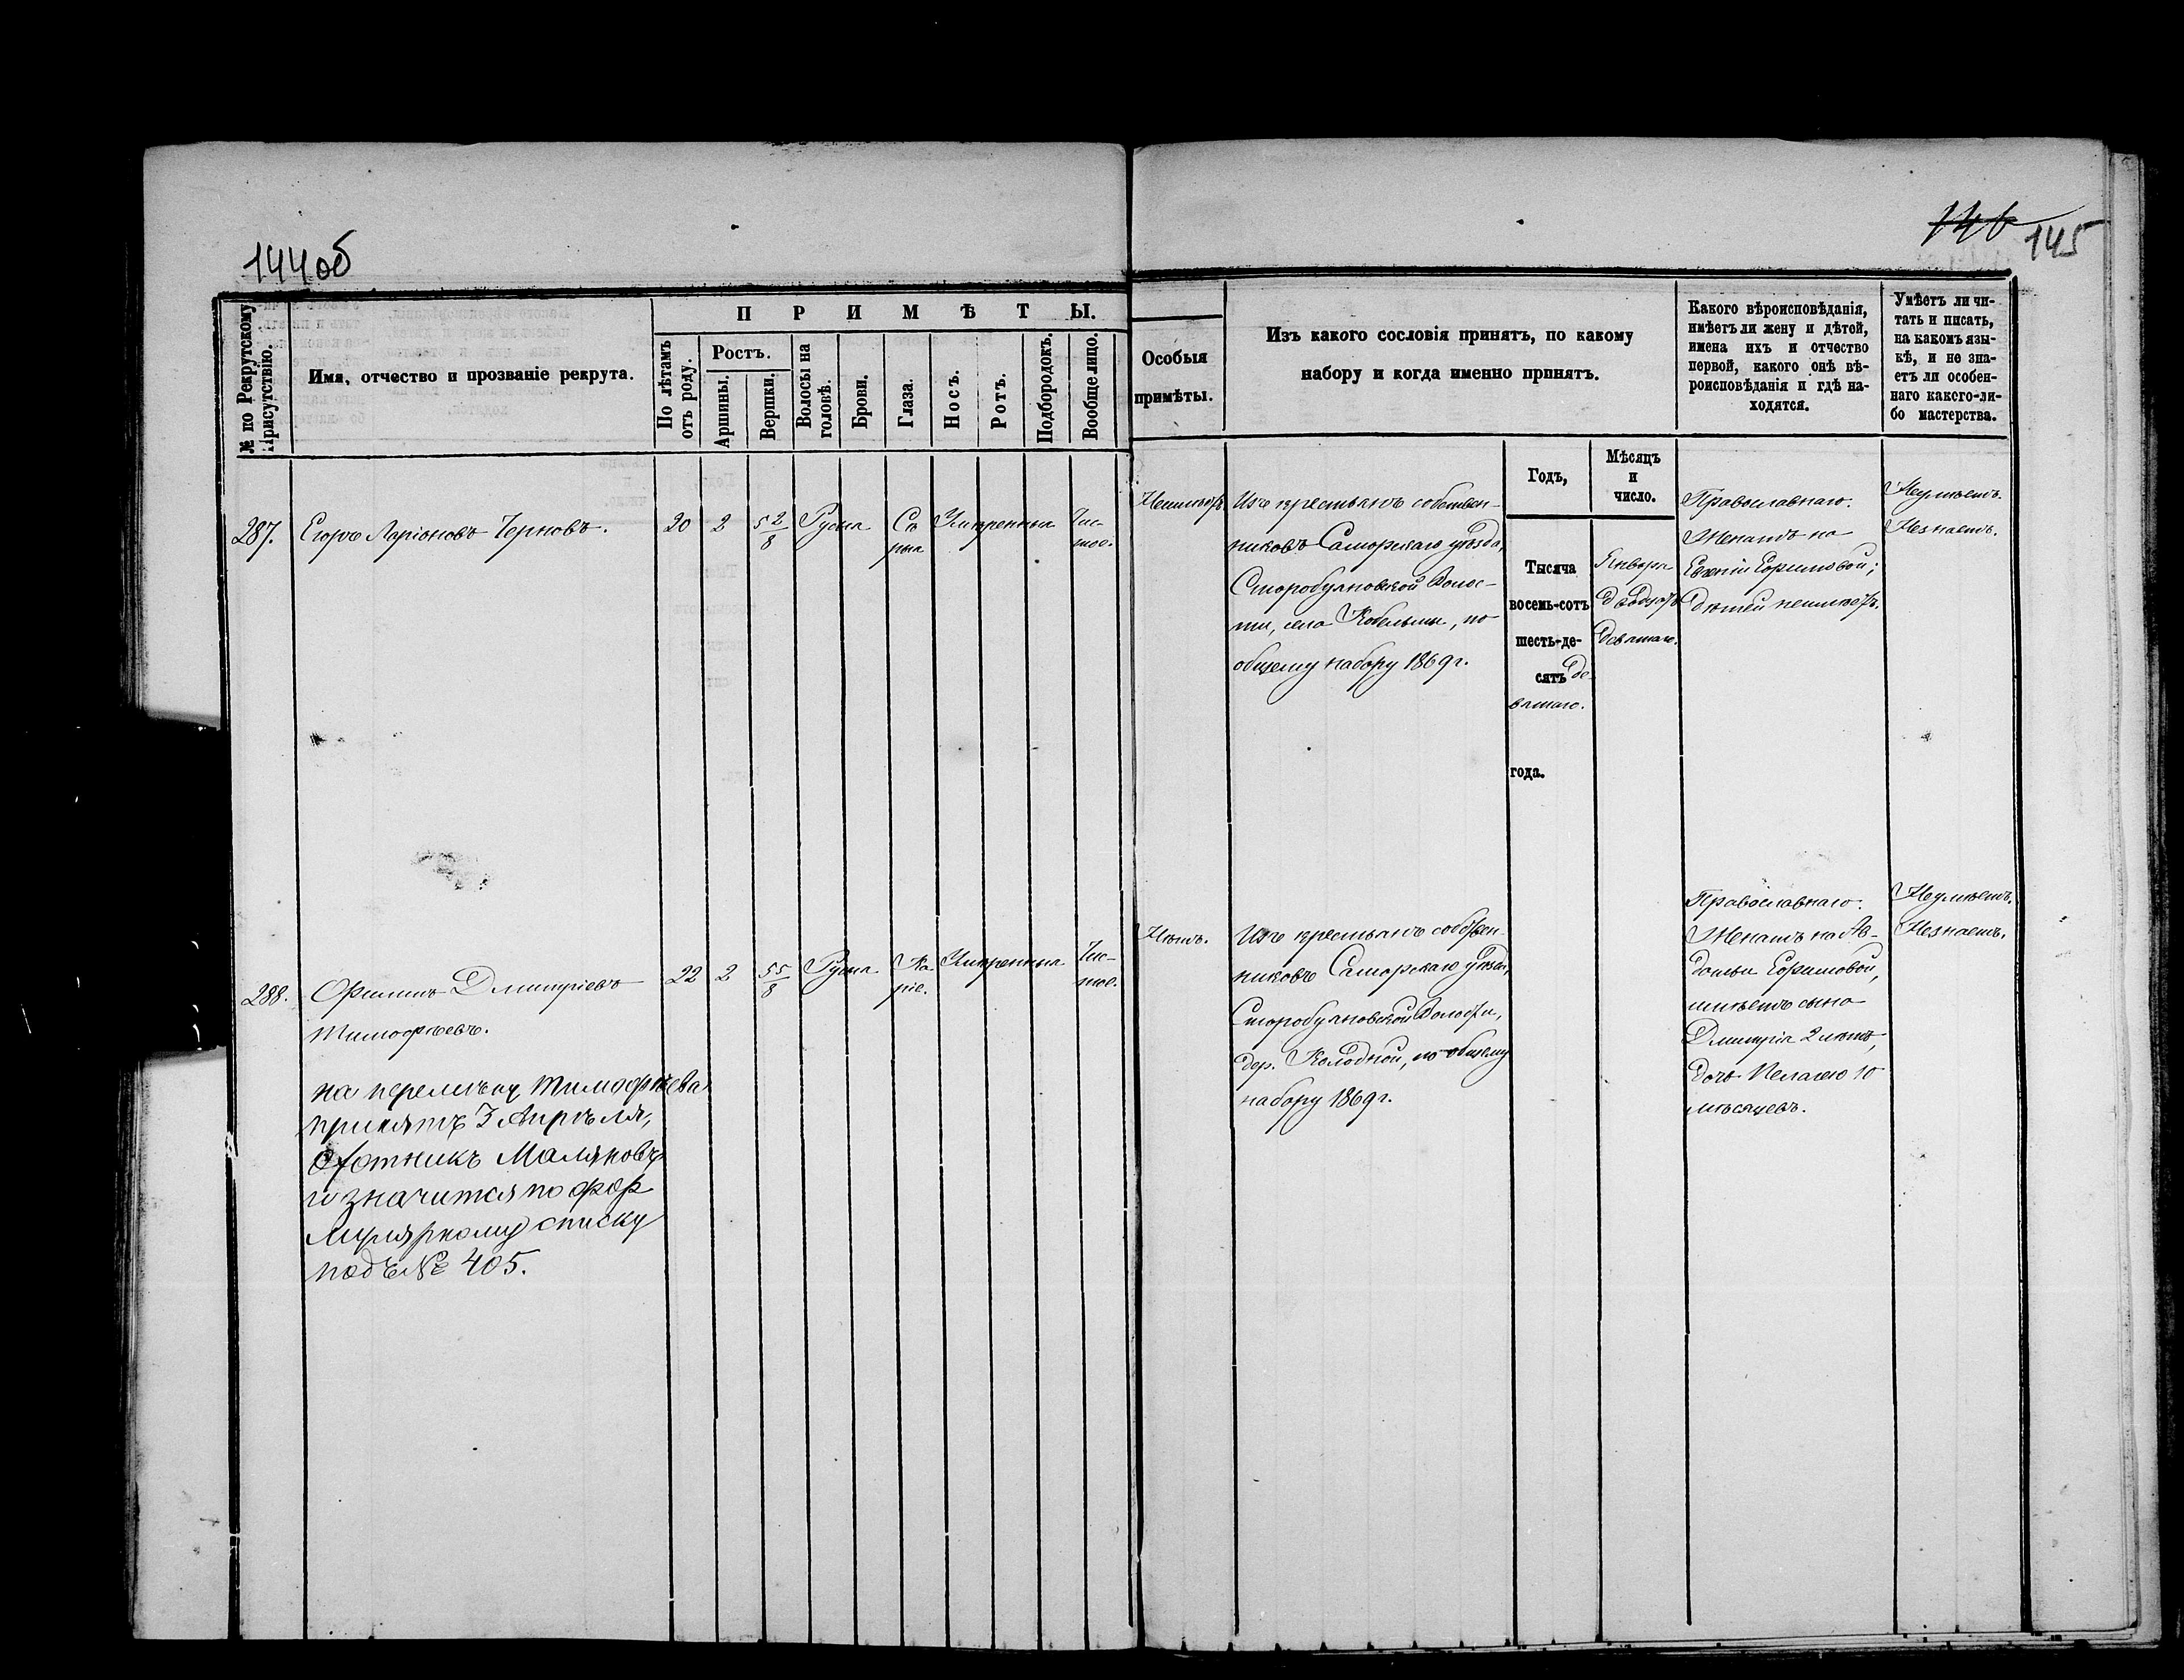 144об
146
145
№ по Рекрутскому Присутствію.
Имя, отчество и прозваніе рекрута.
ПРИМѢТЫ.
По лѣтамъ отъ роду.
Ростъ.
Аршины.
Вершки.
Волосы на головѣ.
Брови.
Глаза.
Носъ.
Ротъ.
Подбородокъ.
Вообще лицо.
Особыя
примѣты.
Изъ какого сословія принятъ, по какому
набору и когда именно принятъ.
Какого вѣроисповѣданія,
имѣетъ ли жену и дѣтей,
имена ихъ и отчество
первой, какого онѣ вѣ-
роисповѣданія и гдѣ на-
ходятся.
Умѣетъ ли чи-
тать и писать,
на какомъ язы-
кѣ, и не зна-
етъ ли особен-
наго какого-ли-
бо мастерства.
Годъ,
Мѣсяцъ
и
число.
287.
Егоръ Ларіоновъ Черновъ.
20
2
5 2/8
Русыя
Сѣ
рыя
Умѣренныя
Чис-
тое.
Неимѣетъ
Изъ крестьянъ собствен-
никовъ Самарскаго уѣзда,
Старобуяновской Волос-
ти, села Кобельмы, по
общему набору 1869 г.
Тысяча
восемь-сотъ
шесть-де-
сятъ де-
вятаго.
года.
Января
двадцать
девятаго.
Православнаго.
Женатъ на
Евгеніи Ефимовой;
дѣтей неимѣетъ.
Неумѣетъ.
Незнаетъ.
288.
Филипъ Дмитріевъ
Тимофѣевъ.
на перемѣну Тимофѣева
принятъ 3 Апрѣля,
Охотникъ Маляновъ
и значится по фор
мулярному списку
подъ № 405.
22
2
5 5/8
Русыя
Ка-
ріе.
Умѣренныя
Чис-
тое.
Нѣтъ.
Изъ крестьянъ собствен-
никовъ Самарскаго уѣзда,
Старобуяновской Волости,
дер. Колодной, по общему
набору 1869 г.
Православнаго.
Женатъ на Ав-
дотьи Ефимовой,
имѣетъ сына
Дмитрія 2 лѣтъ,
дочь Пелагею 10
мѣсяцевъ.
Неумѣетъ.
Незнаетъ.